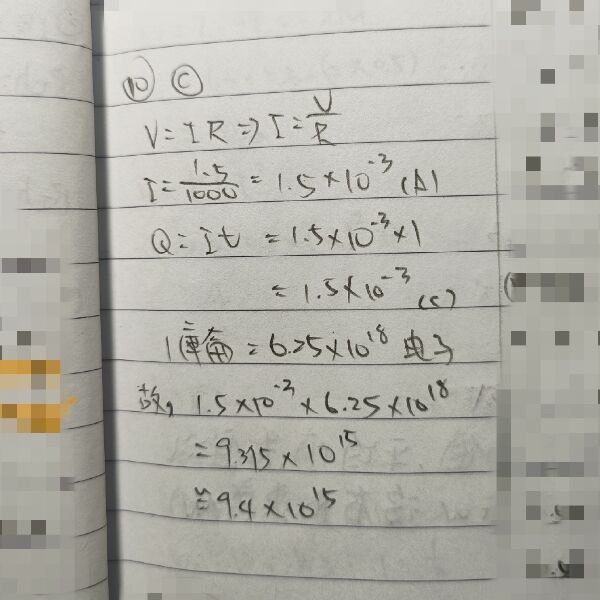 ⑩ Ⓒ
V = IR => I = V/R
I = 1.5/1000 = 1.5 × 10⁻³ (A)
Q = It = 1.5×10⁻³×1
= 1.5×10⁻³ (c)
1庫侖 = 6.25×10¹⁸ 电子
故, 1.5×10⁻³ × 6.25×10¹⁸
= 9.375 × 10¹⁵
≈ 9.4 × 10¹⁵